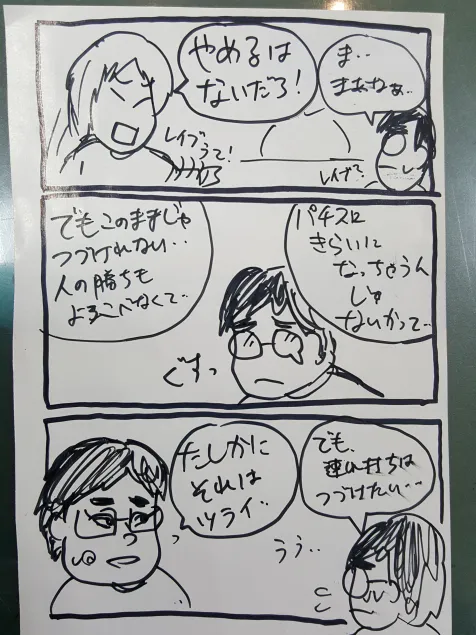 やめるは
ないだろ!
ま‥
まあねぇ‥
レイブ
うて!
レイブ?
パチスロ
きらいに
なっちゃうん
じゃ
ないかって‥
でもこのままじゃ
つづけれない‥
人の勝ちも
よろこべなくて‥
ぐすっ
でも、
連れ打ちは
つづけたい‥
たしかに
それは
ツライ‥
うぅ‥